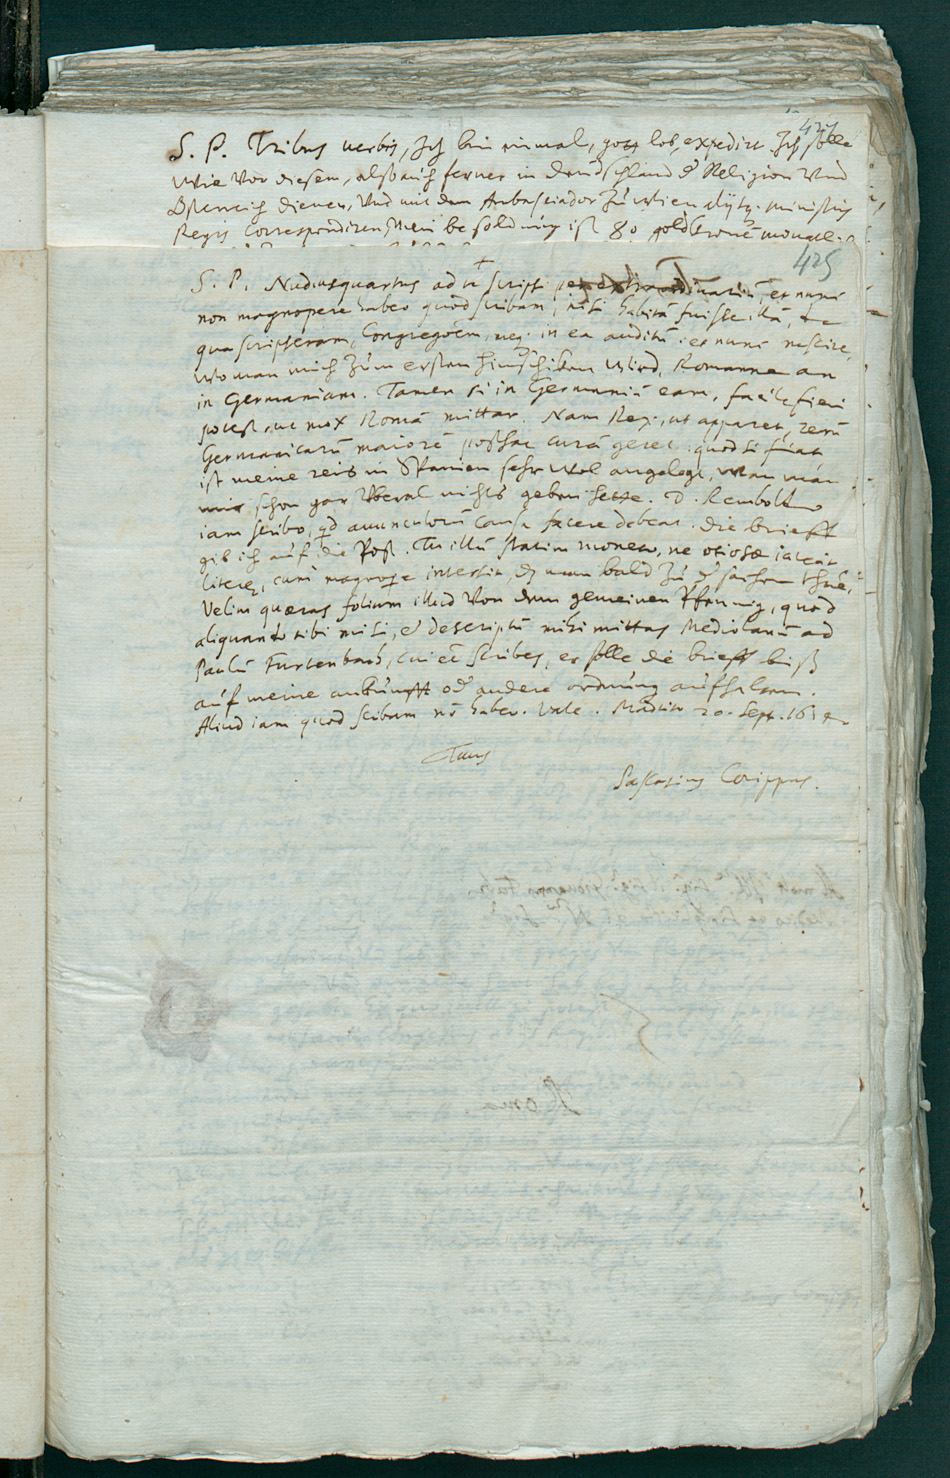 427
S. P. Tribus verbis, Ich bin einmal, gott lob, expedirt. Ich solle
wie vor diesem, also auch ferner in Deudschland d Religion und
Österreich dienen, und mit dem Ambasciador zu wien alijsq. ministris
Regis Correspondiren. Mein besoldung ist 80 goldkronen monatl.
425
S. P. Nudiusquartus ad te scripsi per extraordinariũ, et nunc
non magnopere habeo quod scribam, nisi habitã fuisse illã, de
qua scripseram, Congregoẽm, neq. in ea auditũ: et nunc nescire,
wo man mich zum ersten hinschiken wird, Romamne an
in Germaniam. Tamen si in Germaniã eam, facile fieri
potest, ut mox Romã mittar. Nam Rex, ut apparet, rerũ
Germanicarũ maiorẽ posthac curã geret. quod si fiat
ist meine reis in Spanien sehr wol angelegt, wan man
mir schon gar uberal nichts geben hette. D. Rembold
iam scribo, qd avunculorũ causa facere debeat. die brieff
gib ich auf die Post. Tu illũ statim moneto, ne otiosæ iaceãt
literæ, cum magnopere intersit, dz man bald zu d sachen thue.
Velim quæras folium illud von dem gemeinen Pfennig, quod
aliquando tibi misi, & descriptũ mihi mittas Mediolanũ ad
Paulũ Furtenbach, cui eẽ scribes, er solle die brieff biß
auf meine ankunfft od andere ordnung aufhalten.
Aliud iam quod scribam nõ habeo. Vale. Madriti 20. Sept. 16
Tuus
Gaston Corippus.
Roma